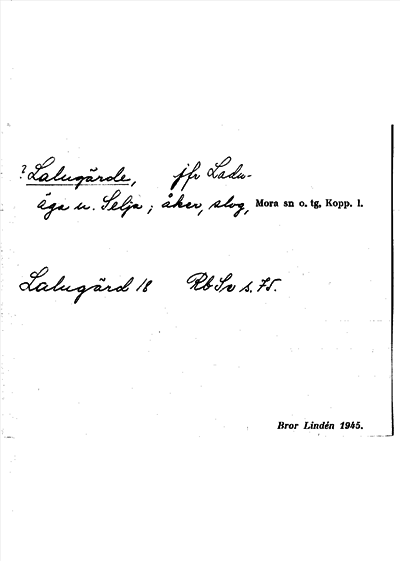 ? Lalugärde, jfr Ladu-
äga u. Selja; åker, slog, Mora sn o. tg, Kopp. l.
Lalugärd 18 Rb Sv s. 75.
Bror Lindén 1945.